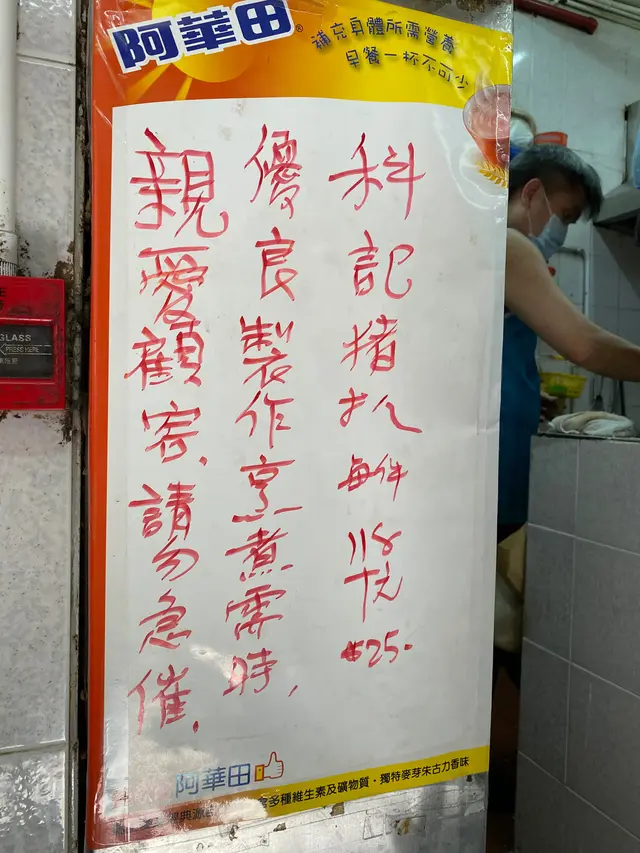 阿華田®
補充身體所需營養
早餐一杯不可少
科記猪扒每件
$25.
優良製作烹煮需時,
親愛顧客,請勿急催.
阿華田
多種維生素及礦物質‧獨特麥芽朱古力香味
GLASS
PRESS HERE